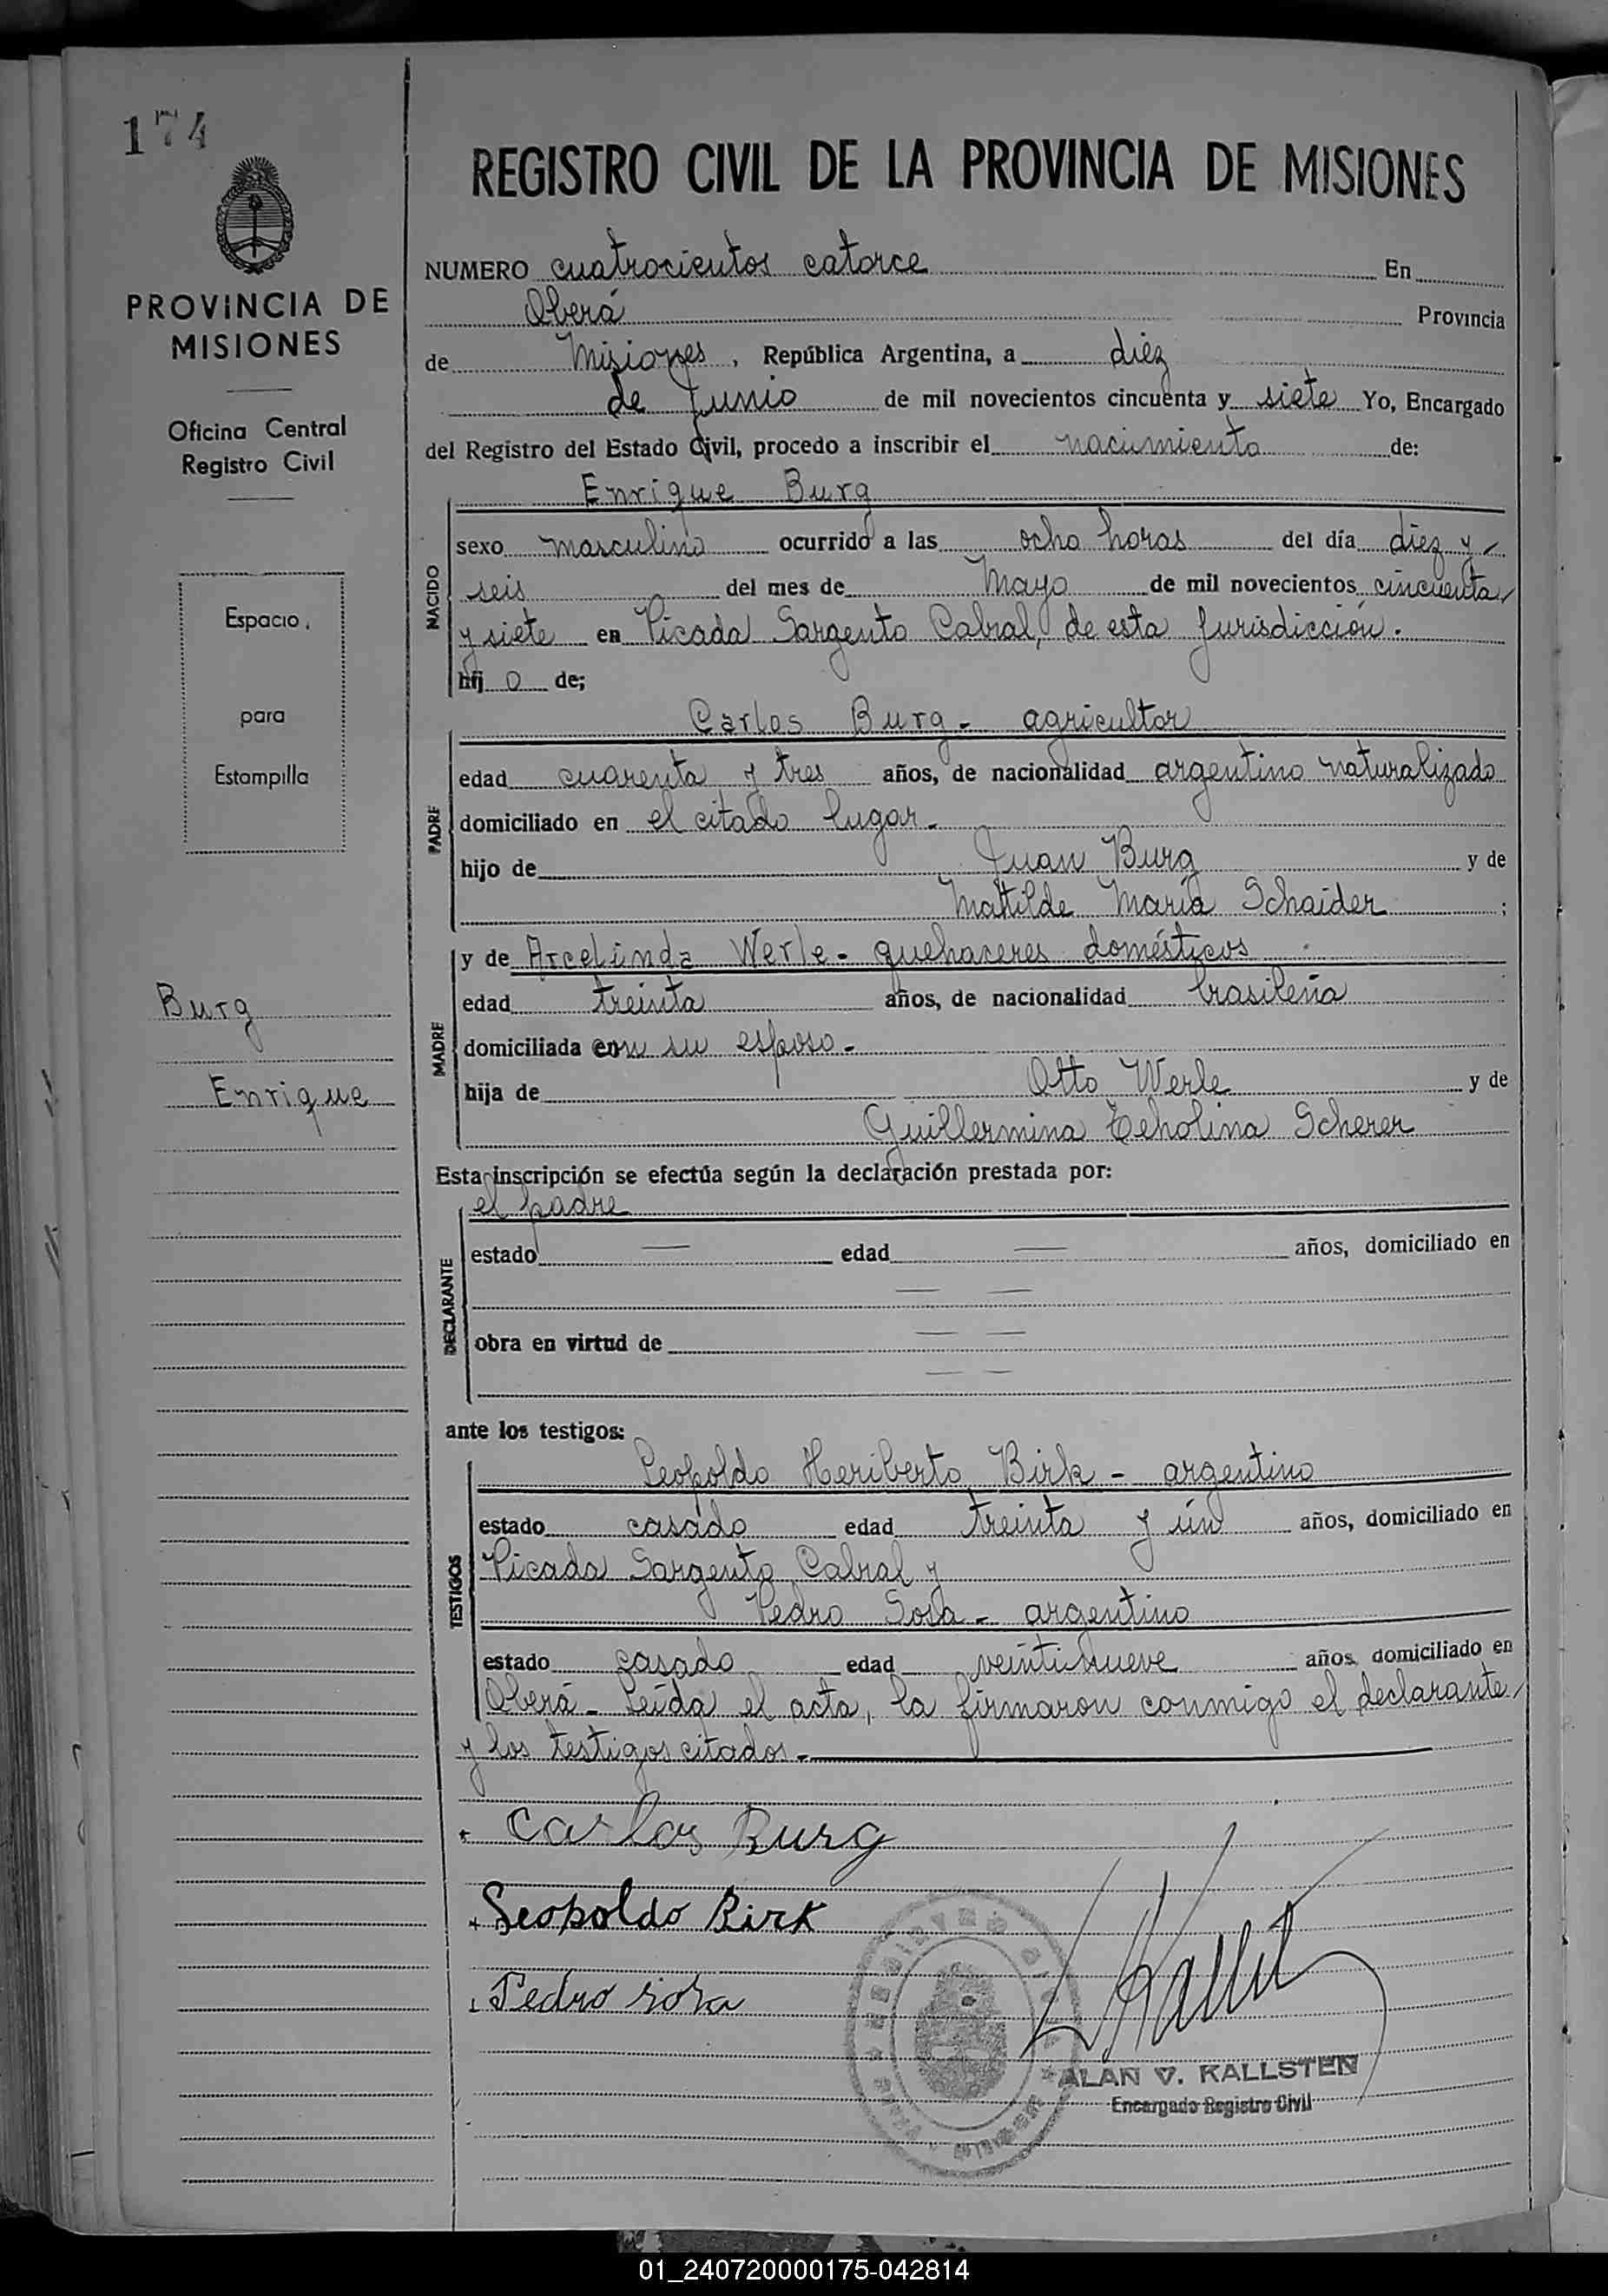 174
PROVINCIA DE
MISIONES
Oficina Central
Registro Civil
Espacio
para
Estampilla
Burg
Enrique
REGISTRO CIVIL DE LA PROVINCIA DE MISIONES
NUMERO cuatrocientos catorce En
Oberá Provincia
de Misiones, República Argentina, a diez
de Junio de mil novecientos cincuenta y siete Yo, Encargado
del Registro del Estado Civil, procedo a inscribir el nacimiento de:
Enrique Burg
NACIDO
sexo masculino ocurrido a las ocho horas del día diez y
seis del mes de Mayo de mil novecientos cincuenta
y siete en Picada Sargento Cabral, de esta Jurisdicción.
hij o de;
Carlos Burg - agricultor
PADRE
edad cuarenta y tres años, de nacionalidad argentino naturalizado
domiciliado en el citado lugar -
hijo de Juan Burg y de
Matilde María Schaider ;
y de Arcelinda Werle - quehaceres domésticos
MADRE
edad treinta años, de nacionalidad brasileña
domiciliada con su esposo -
hija de Otto Werle y de
Guillermina Scherer
Esta inscripción se efectúa según la declaración prestada por:
el padre
DECLARANTE
estado — edad — años, domiciliado en
— —
obra en virtud de — —
— —
ante los testigos:
Leopoldo Heriberto Birk - argentino
TESTIGOS
estado casado edad treinta y ún años, domiciliado en
Picada Sargento Cabral y
Pedro Sosa - argentino
estado casado edad veintinueve años domiciliado en
Oberá - Leída el acta, la firmaron conmigo el declarante
y los testigos citados -
Carlos Burg
Leopoldo Birk
Pedro Sosa
ALAN V. KALLSTEN
Encargado Registro Civil
01_240720000175-042814